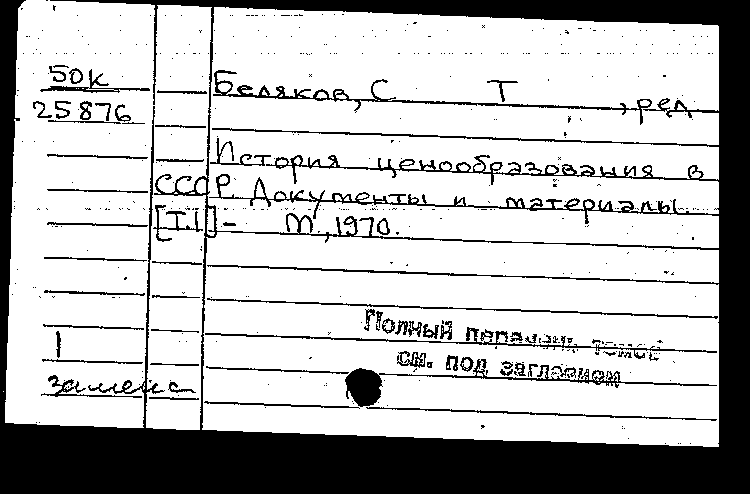 50к
25876
Беляков, С Т , ред
История ценообразования в
СССР. Документы и материалы.
[Т.1] - М, 1970.
Полный перечень томов
см. под заглавием
1
замена